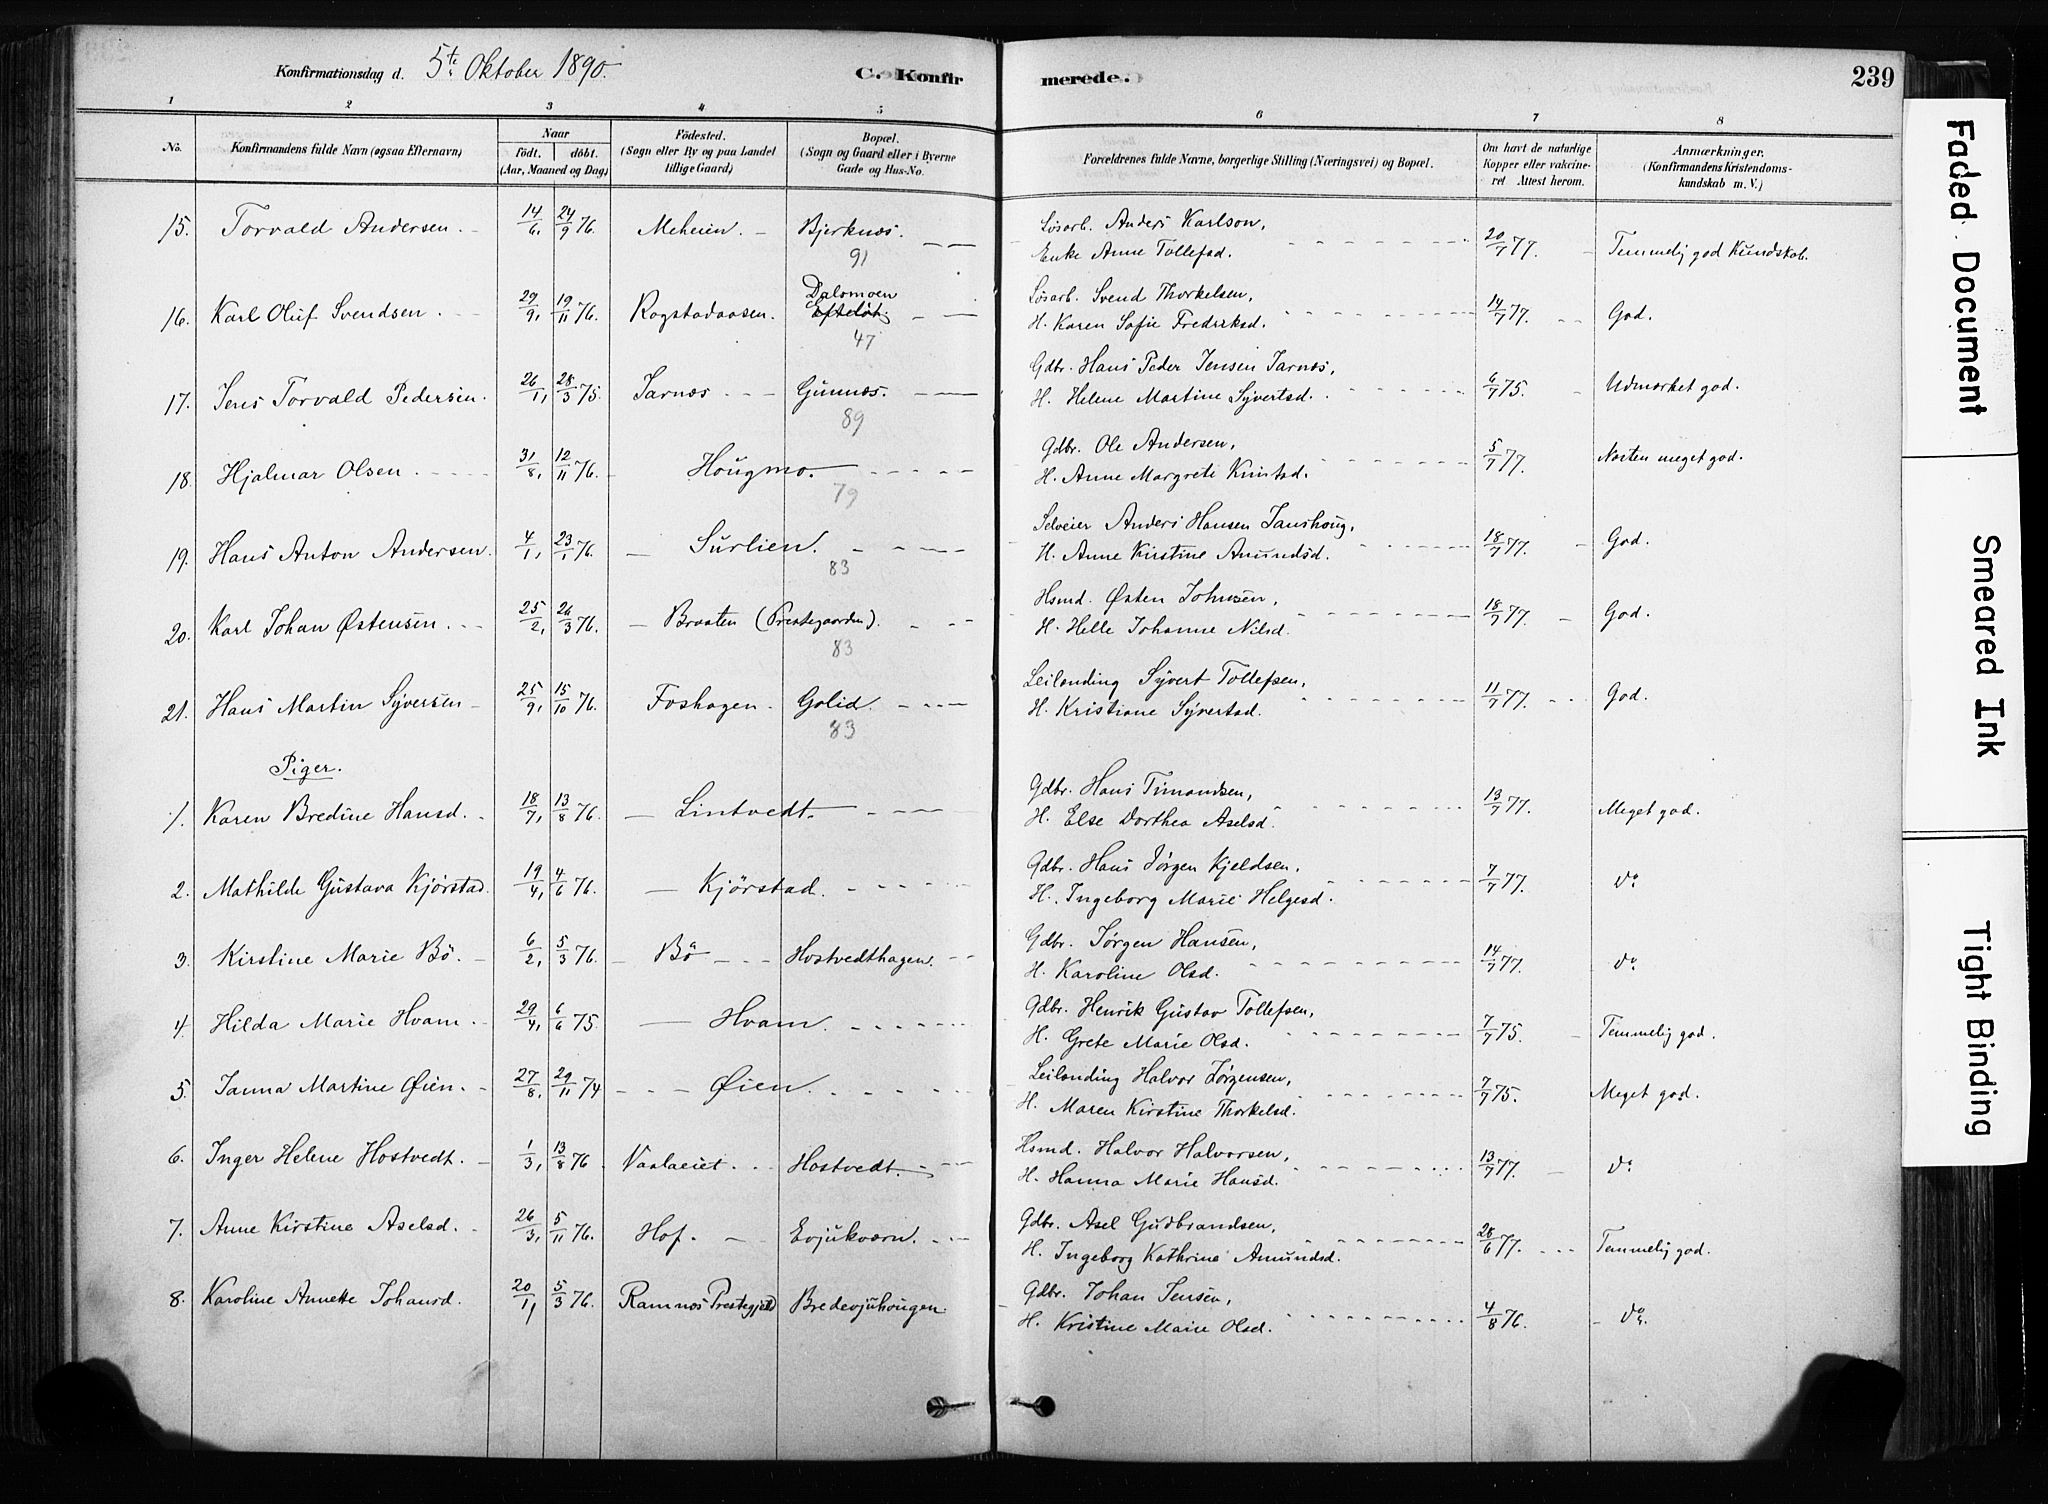 Konfirmationsdag d. 5te Oktober 1890. C. Konfirmerede. 239
1 2 3 4 5 6 7 8
No. Konfirmandens fulde Navn (ogsaa Efternavn) Naar födt. döbt. (Aar, Maaned og Dag) Födested. (Sogn eller By og paa Landet tillige Gaard) Bopæl. (Sogn og Gaard eller i Byerne Gade og Hus-No. Forældrenes fulde Navne, borgerlige Stilling (Næringsvei) og Bopæl. Om havt de naturlige Kopper eller vakcineret Attest herom. Anmærkninger. (Konfirmandens Kristendomskundskab m. V.)
15. Torvald Andersen 14/6, 24/9 76. Meheien. Bjerknæs. 91 Løsarb. Anders Karlson, 20/7 77. Temmelig god Kundskab.
Enke Anne Tollefsd.
16. Karl Oluf Svendsen. 29/9, 19/11 76. Rogstadaasen. Dalsmoen Efteløt 47 Løsarb. Svend Thorkelsen, 14/7 77. God.
H. Karen Sofie Fredriksd.
17. Jens Torvald Pedersen. 26/1, 28/3 75. Jarnæs Gunnæs. 89 Gdbr. Hans Peder Jensen Jarnæs, 6/7 75. Udmærket god.
H. Helene Martine Syvertsd.
18. Hjalmar Olsen. 31/8, 12/11 76. Hougmo. 79 Gdbr. Ole Andersen, 5/7 77. Næsten meget god.
H. Anne Margrete Knutsd.
19. Hans Anton Andersen. 4/1, 23/1 76. Surlien. 83 Selveier Anders Hansen Janshoug, 18/7 77. God.
H. Anne Kirstine Amundsd.
20. Karl Johan Østensen. 25/2, 26/3 76. Braaten (Prestegaarden). 83 Hsmd. Østen Johnsen, 18/7 77. God.
H. Helle Johanne Nilsd.
21. Hans Martin Syversen 25/9, 15/10 76. Foshagen. Golid. 83 Leilending Syvert Tollefsen, 11/7 77. God.
H. Kristiane Syvertsd.
Piger.
1. Karen Bredine Hansd. 18/7, 13/8 76. Lintvedt. Gdbr. Hans Timandsen, 13/7 77. Meget god.
H. Else Dorthea Aselsd.
2. Mathilde Gustava Kjörstad. 19/4, 4/6 76. Kjörstad. Gdbr. Hans Jörgen Kjeldsen, 7/7 77. Do
H. Ingeborg Marie Helgesd.
3. Kirstine Marie Bö. 6/2, 5/3 76. Bö Hostvedthagen. Gdbr. Jörgen Hansen, 14/7 77. Do
H. Karoline Olsd.
4. Hilda Marie Hvam. 29/4, 6/6 75. Hvam. Gdbr. Henrik Gustav Tollefsen, 7/7 75. Temmelig god.
H. Grete Marie Olsd.
5. Janna Martine Øien. 27/8, 29/11 74 Øien. Leilending Halvor Jörgensen, 7/7 75. Meget god.
H. Maren Kirstine Thorkelsd.
6. Inger Helene Hostvedt. 1/3, 13/8 76 Vaalaeiet. Hostvedt. Hsmd. Halvor Halvorsen, 13/7 77. Do
H. Hanna Marie Hansd.
7. Anne Kirstine Aselsd. 26/3, 5/11 76. Hof. Evjukværn. Gdbr. Asel Gudbrandsen, 28/6 77. Temmelig god.
H. Ingeborg Kathrine Amundsd.
8. Karoline Annette Johansd. 20/1, 5/3 76. Ramnæs Prestegjeld Bredevjuhougen. Gdbr. Johan Jensen, 4/8 76. Do.
H. Kristine Marie Olsd.
Faded Document
Smeared Ink
Tight Binding